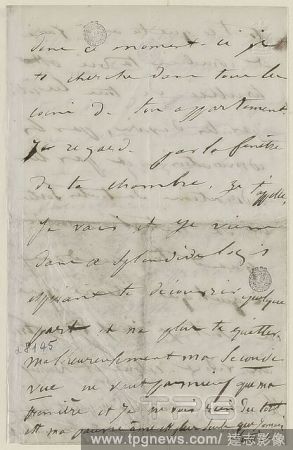 dans ce moment-ci je
te cherche dans tous les
coins de ton appartement.
Je regarde par la fenêtre
de ta chambre, je t'appelle,
Je vais et je viens
dans ce splendide logis
espérant te découvrir quelque
part et ne plus te quitter
malheureusement ma seconde
vue ne vaut jamais que ma
première et je ne vois rien du tout
et ma pauvre âme est
28145
TPG
www.tpgnews.com 達志影像